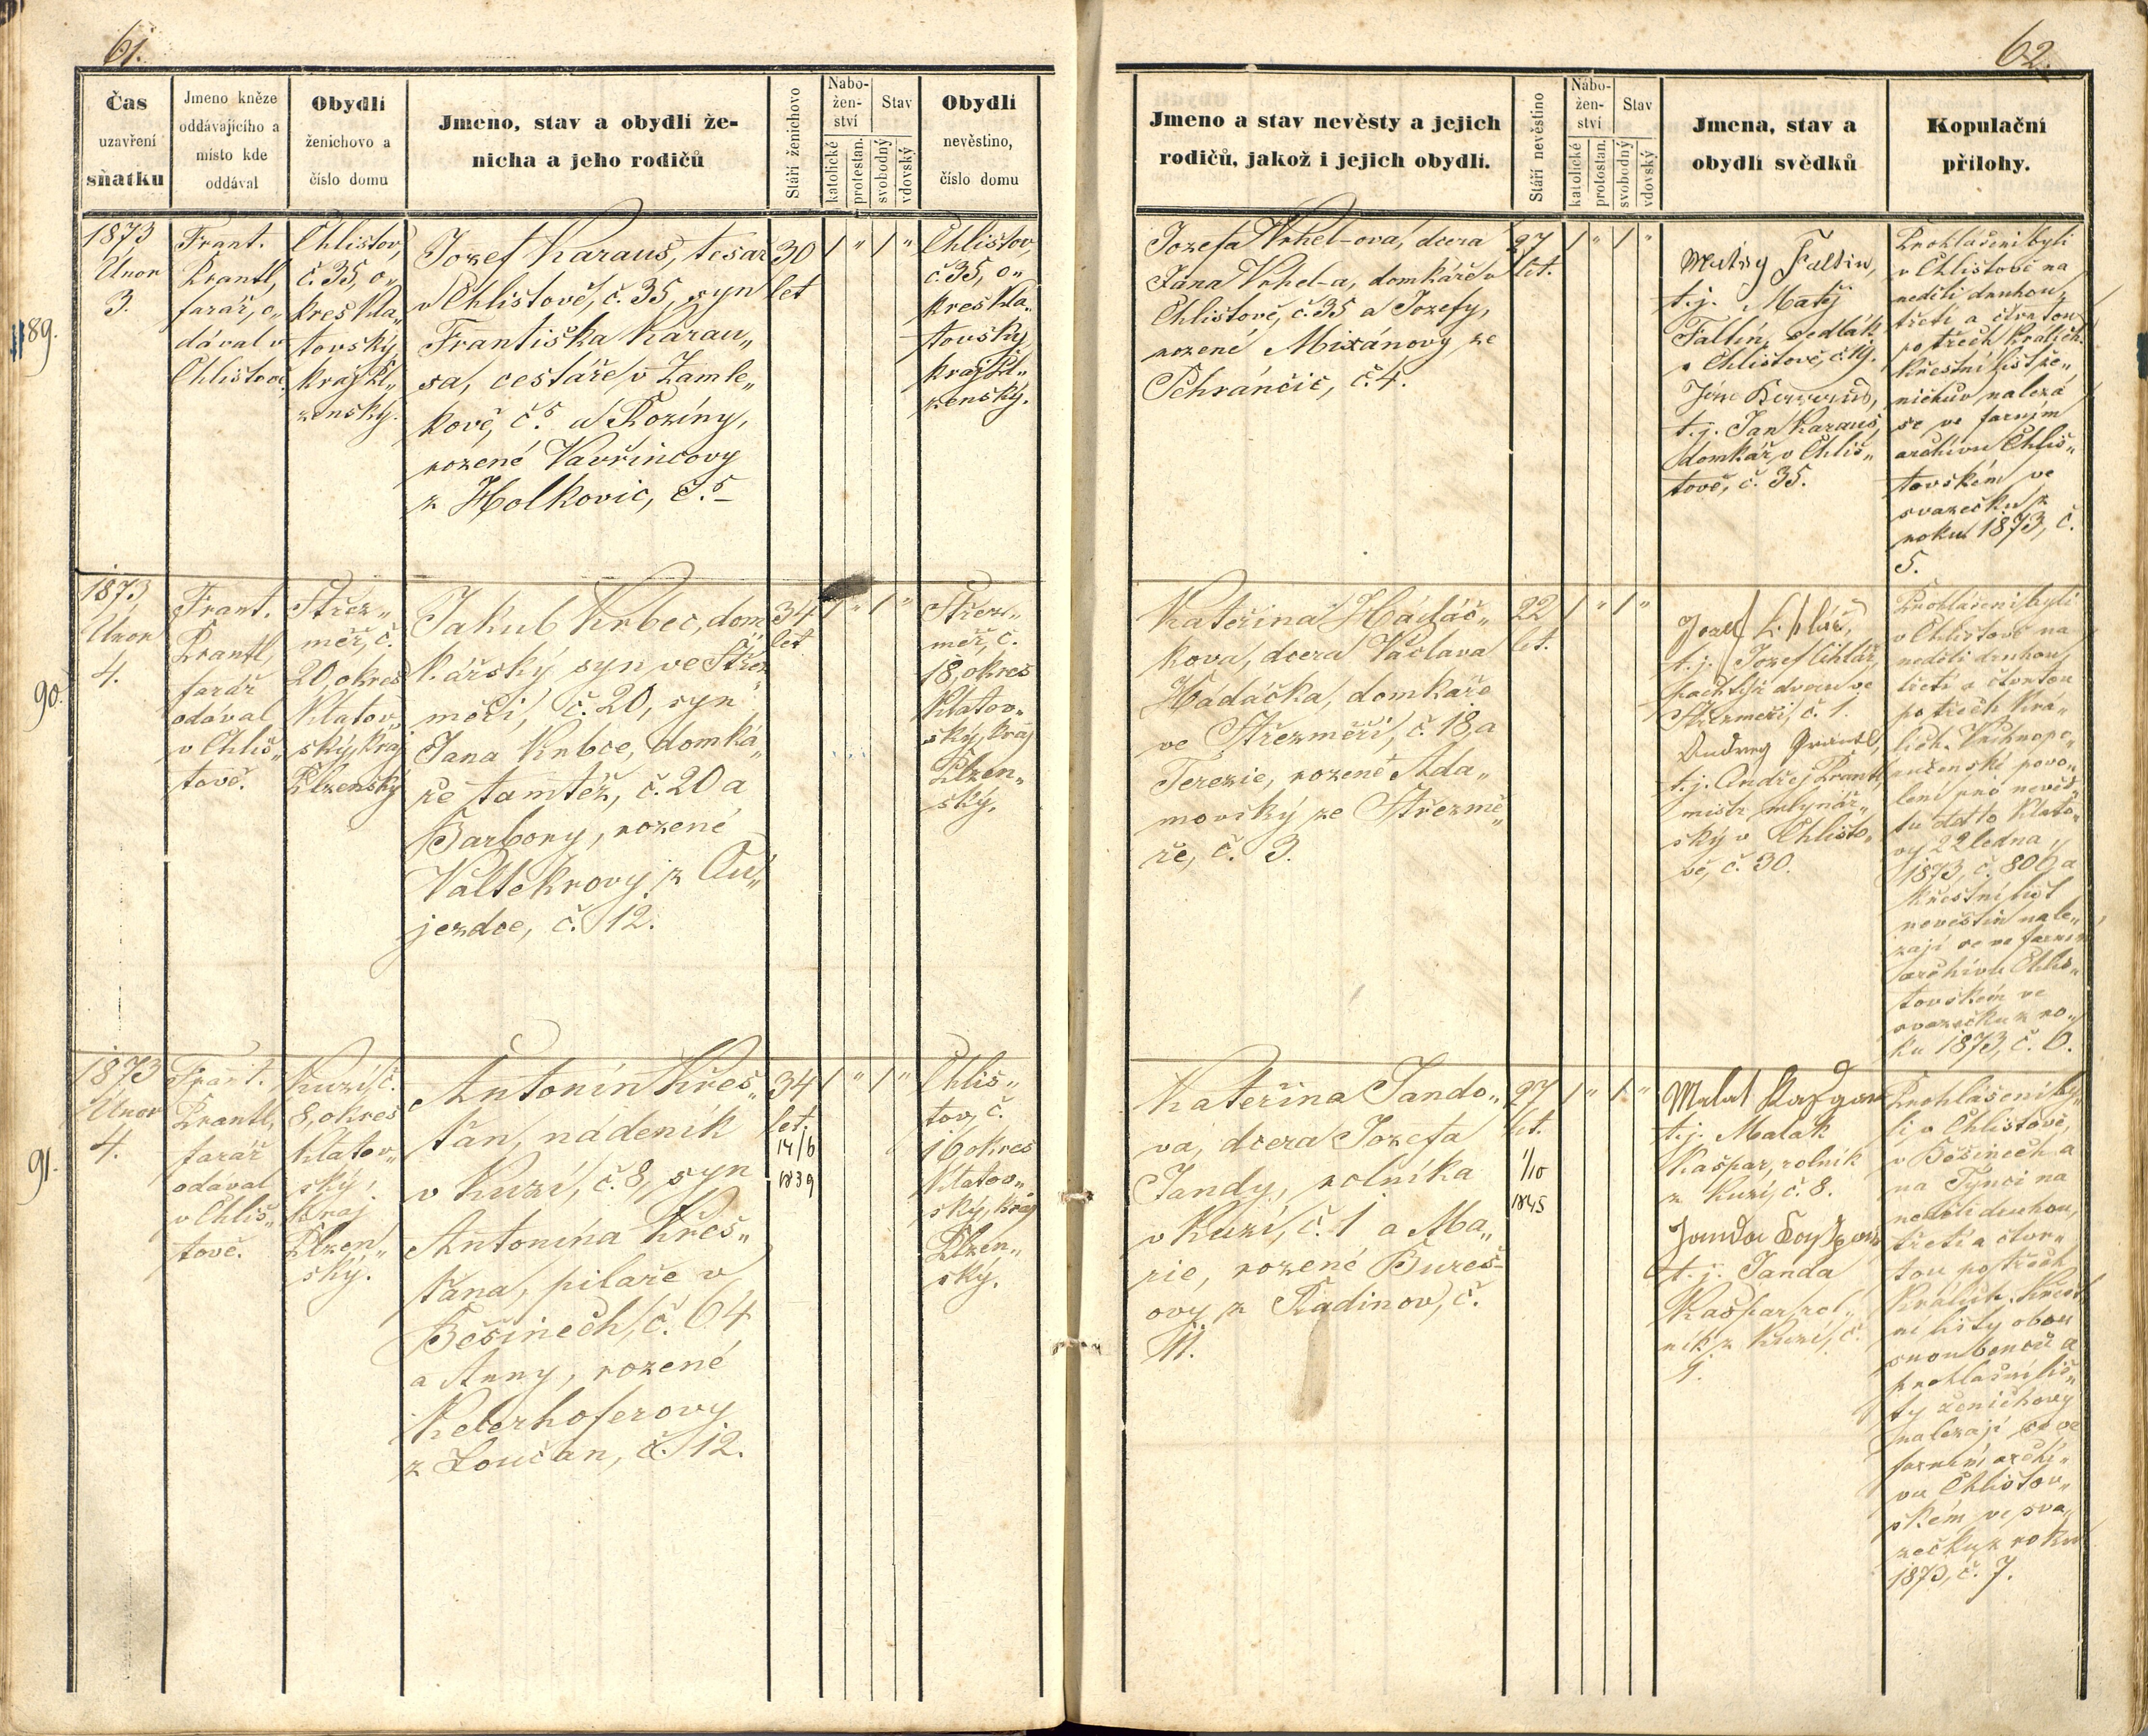 61.
Čas
uzavření
sňatku
Jmeno kněze
oddávajícího a
místo kde
oddával
Obydlí
ženichovo a
číslo domu
Jmeno, stav a obydlí že-
nicha a jeho rodičů
Stáří ženichovo
Nabo-
žen-
ství
katolické
protestan.
Stav
svobodný
vdovský
Obydlí
nevěstino,
číslo domu
89.
1873
Únor
3.
Frant.
Prantl,
farář, o„
dával v
Chlistově.
Chlistov,
č. 35, o„
kres Kla„
tovský,
kraj Pl„
zenský.
Jozef Karaus, tesař
v Chlistově, č. 35, syn
Františka Karau„
sa, cestáře v Zamle„
kově, č. 5 a Roziny,
rozené Vavřincovy
z Holkovic, č. 5
30
let
1 " 1 "
Chlistov,
č. 35, o„
kres Kla„
tovský,
kraj Pl„
zenský.
90.
1873
Únor
4.
Frant.
Prantl,
farář
odával
v Chlis„
tově.
Střez„
měř, č.
20, okres
Klatov„
ský, kraj
Plzenský
Jakub Krbec, dom„
kářský syn ve Střez„
měři, č. 20, syn
Jana Krbce, domká„
ře tamtéž, č. 20 a
Barbory, rozené
Valtekrovy z Ou„
jezdce, č. 12.
34
let
1 " 1 "
Střez„
měř, č.
18, okres
Klatov„
ský, kraj
Plzen„
ský.
91.
1873
Únor
4.
Frant.
Prantl,
farář
odával
v Chlis„
tově.
Kuzí, č.
8, okres
Klatov„
ský,
kraj
Plzen„
ský.
Antonín Křes„
ťan, nádeník
v Kuzí, č. 8, syn
Antonína Křes„
ťana, pilaře v
Běšinech, č. 64
a Anny, rozené
Kelerhoferovy
z Loučan, č. 12.
34
let.
14/6
1839
1 " 1 "
Chlis„
tov, č.
16 okres
Klatov„
ský, kraj
Plzen„
ský.
62.
Jmeno a stav nevěsty a jejich
rodičů, jakož i jejich obydlí.
Stáří nevěstino
Nábo-
žen-
ství
katolické
protestan.
Stav
svobodný
vdovský
Jmena, stav a
obydlí svědků
Kopulační
přílohy.
Jozefa Vrhel-ová, dcera
Jana Vrhel-a, domkáře v
Chlistově, č. 35 a Jozefy,
rozené Mixánovy ze
Pchránčic, č. 4.
27
let.
1 " 1 "
Faltin,
t. j. Matěj
Faltin, sedlák
v Chlistově, č.
t. j. Jan Karaus,
domkář v Chlis„
tově, č. 35.
Prohlášeni byli
v Chlistově na
neděli druhou,
třetí a čtvrtou
po třech Králích.
Křestní list že„
nichův nalezá
se ve farním
archivu Chlis„
tovském ve
svazečku z
roku 1873, č.
5.
Kateřina Hádáč„
kova, dcera Václava
Hádáčka, domkáře
ve Střezměři, č. 18, a
Terezie, rozené Ada„
movský ze Střezmě„
ře, č. 3.
22
let.
1 " 1 "
t. j. Jozef Cihlář,
pachtýř dvoru ve
Střezměři, č. 1.
t. j. Andřej Prantl,
mistr mlynář„
ský v Chlisto„
vě, č. 30.
Prohlášeni byli
v Chlistově na
neděli druhou,
třetí a čtvrtou
po třech Krá„
lích. Vrchnopo„
ručenské povo„
lení pro nevěs„
tu dtto Klato„
vy 22 ledna
1873, č. 806 a
křestní list
nevěstin nale„
zají se ve farním
archivu Chlis„
tovském ve
svazečku z ro„
ku 1873, č. 6.
Kateřina Jando„
va, dcera Jozefa
Jandy, rolníka
v Kuzí, č. 1 a Ma„
rie, rozené Bureš-
ovy z Radinov, č.
11.
27
let.
1/10
1845
1 " 1 "
Malat Kaspar
t. j. Malák
Kašpar, rolník
z Kuzí, č. 8.
Janda Kašpar
t. j. Janda
Kašpar, rol„
ník z Kuzí, č.
1.
Prohlášeni by„
li v Chlistově,
v Běšinech a
na Týnci na
neděli druhou,
třetí a čtvr„
tou po třech
Králích. Křest„
ní listy obou
snoubenců a
prohlašní lis„
ty ženichovy
nalezají se ve
farním archi„
vu Chlistov„
ském ve sva„
zečku z roku
1873, č. 7.